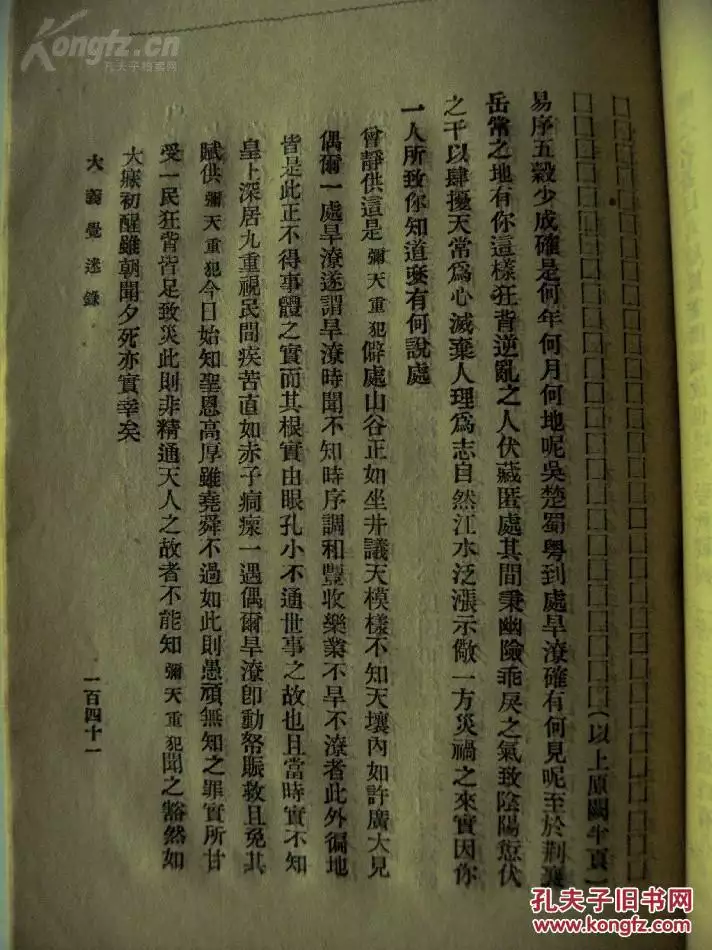 Kongfz.cn
孔夫子旧書网
□□□□□□□□□□□□□□□□□□□□□□□□□□□□□□
□□□□□□□□□□□□□□□□□□□□□□□□(以上原闕半頁)
易序五穀少成確是何年何月何地呢吳楚蜀粵到處旱潦確有何見呢至於荆襄
岳常之地有你這樣狂背逆亂之人伏藏匿處其間秉幽險乖戾之氣致陰陽愆伏
之干以肆擾天常爲心滅棄人理爲志自然江水泛漲示儆一方災禍之來實因你
一人所致你知道麽有何說處
曾靜供這是彌天重犯僻處山谷正如坐井議天模樣不知天壤內如許廣大見
偶爾一處旱潦遂謂旱潦時聞不知時序調和豐收樂業不旱不潦者此外徧地
皆是此正不得事體之實而其根實由眼孔小不通世事之故也且當時實不知
皇上深居九重視民間疾苦直如赤子痌瘝一遇偶爾旱潦卽動帑賑救且免其
賦供彌天重犯今日始知聖恩高厚雖堯舜不過如此則愚頑無知之罪實所甘
受一民狂背皆足致災此則非精通天人之故者不能知彌天重犯聞之豁然如
大寐初醒雖朝聞夕死亦實幸矣
大義覺迷錄
一百四十一
孔夫子旧书网
www.kongfz.com